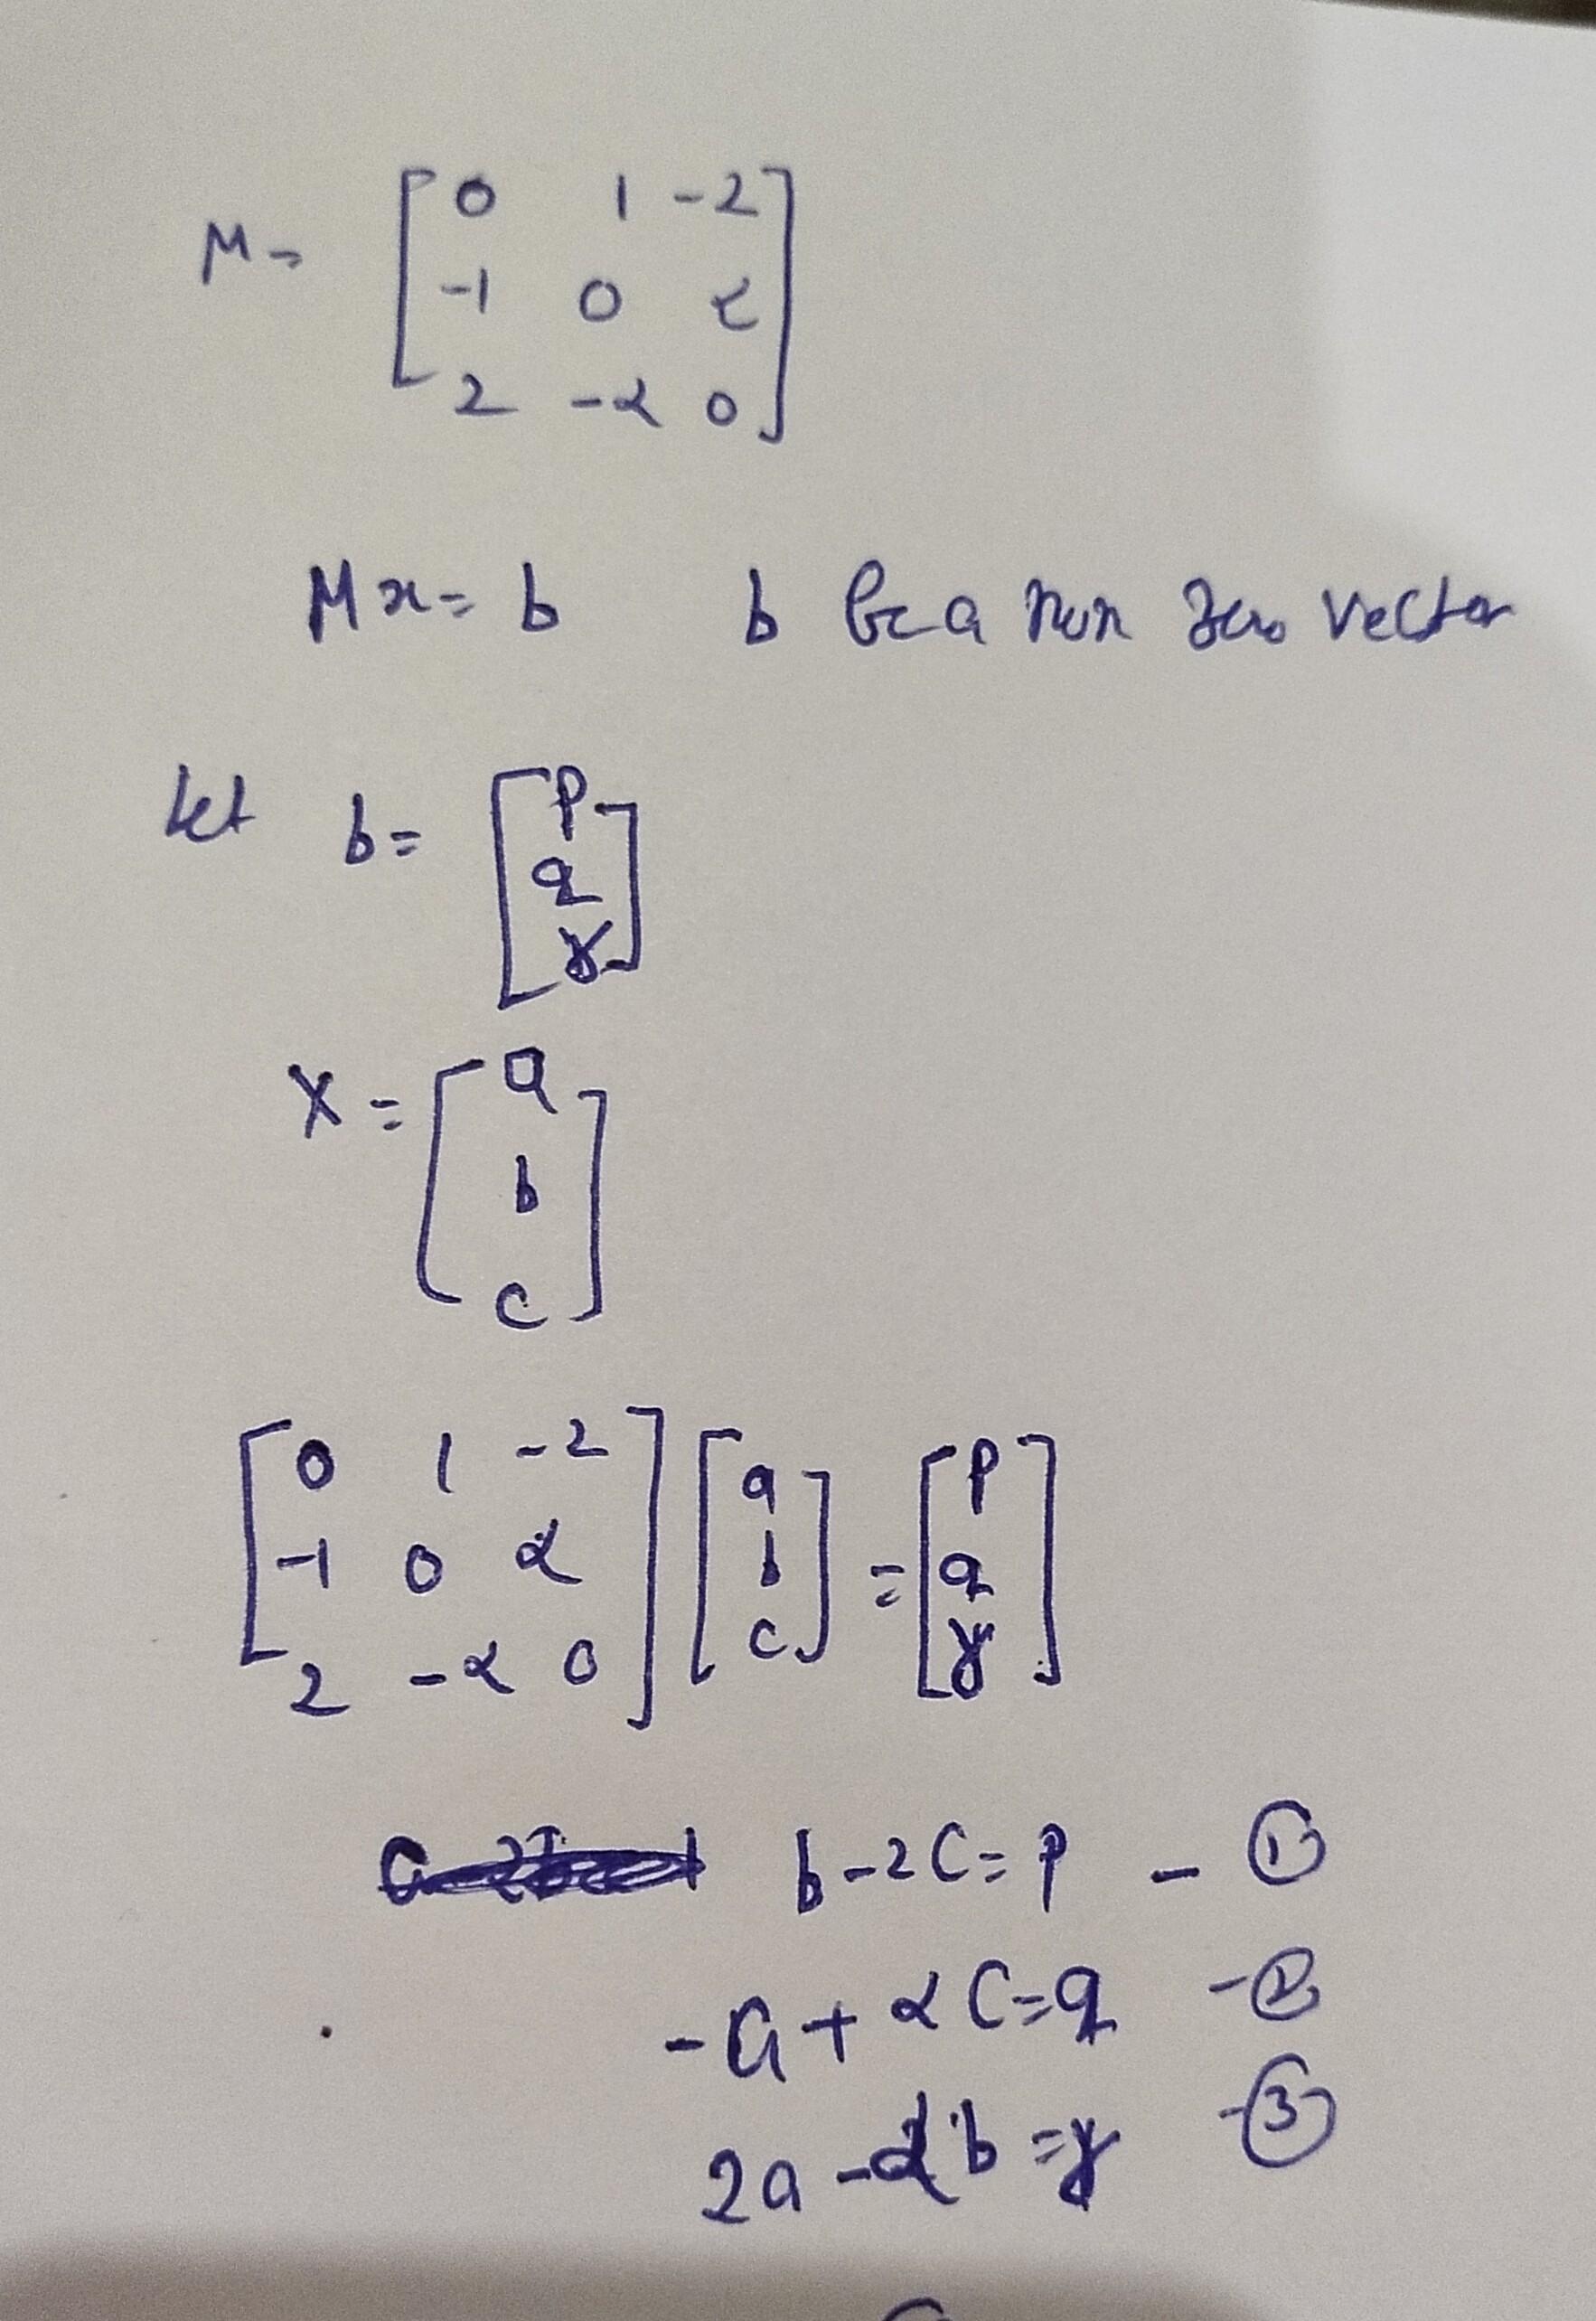 M = [ 0 1 -2
-1 0 α
2 -α 0 ]
Mx = b b be a non zero vector
let b = [ p
q
r ]
X = [ a
b
c ]
[ 0 1 -2 ] [ a ] = [ p ]
[ -1 0 α ] [ b ] [ q ]
[ 2 -α 0 ] [ c ] [ r ]
b - 2c = p - ①
-a + αc = q - ②
2a - αb = r - ③